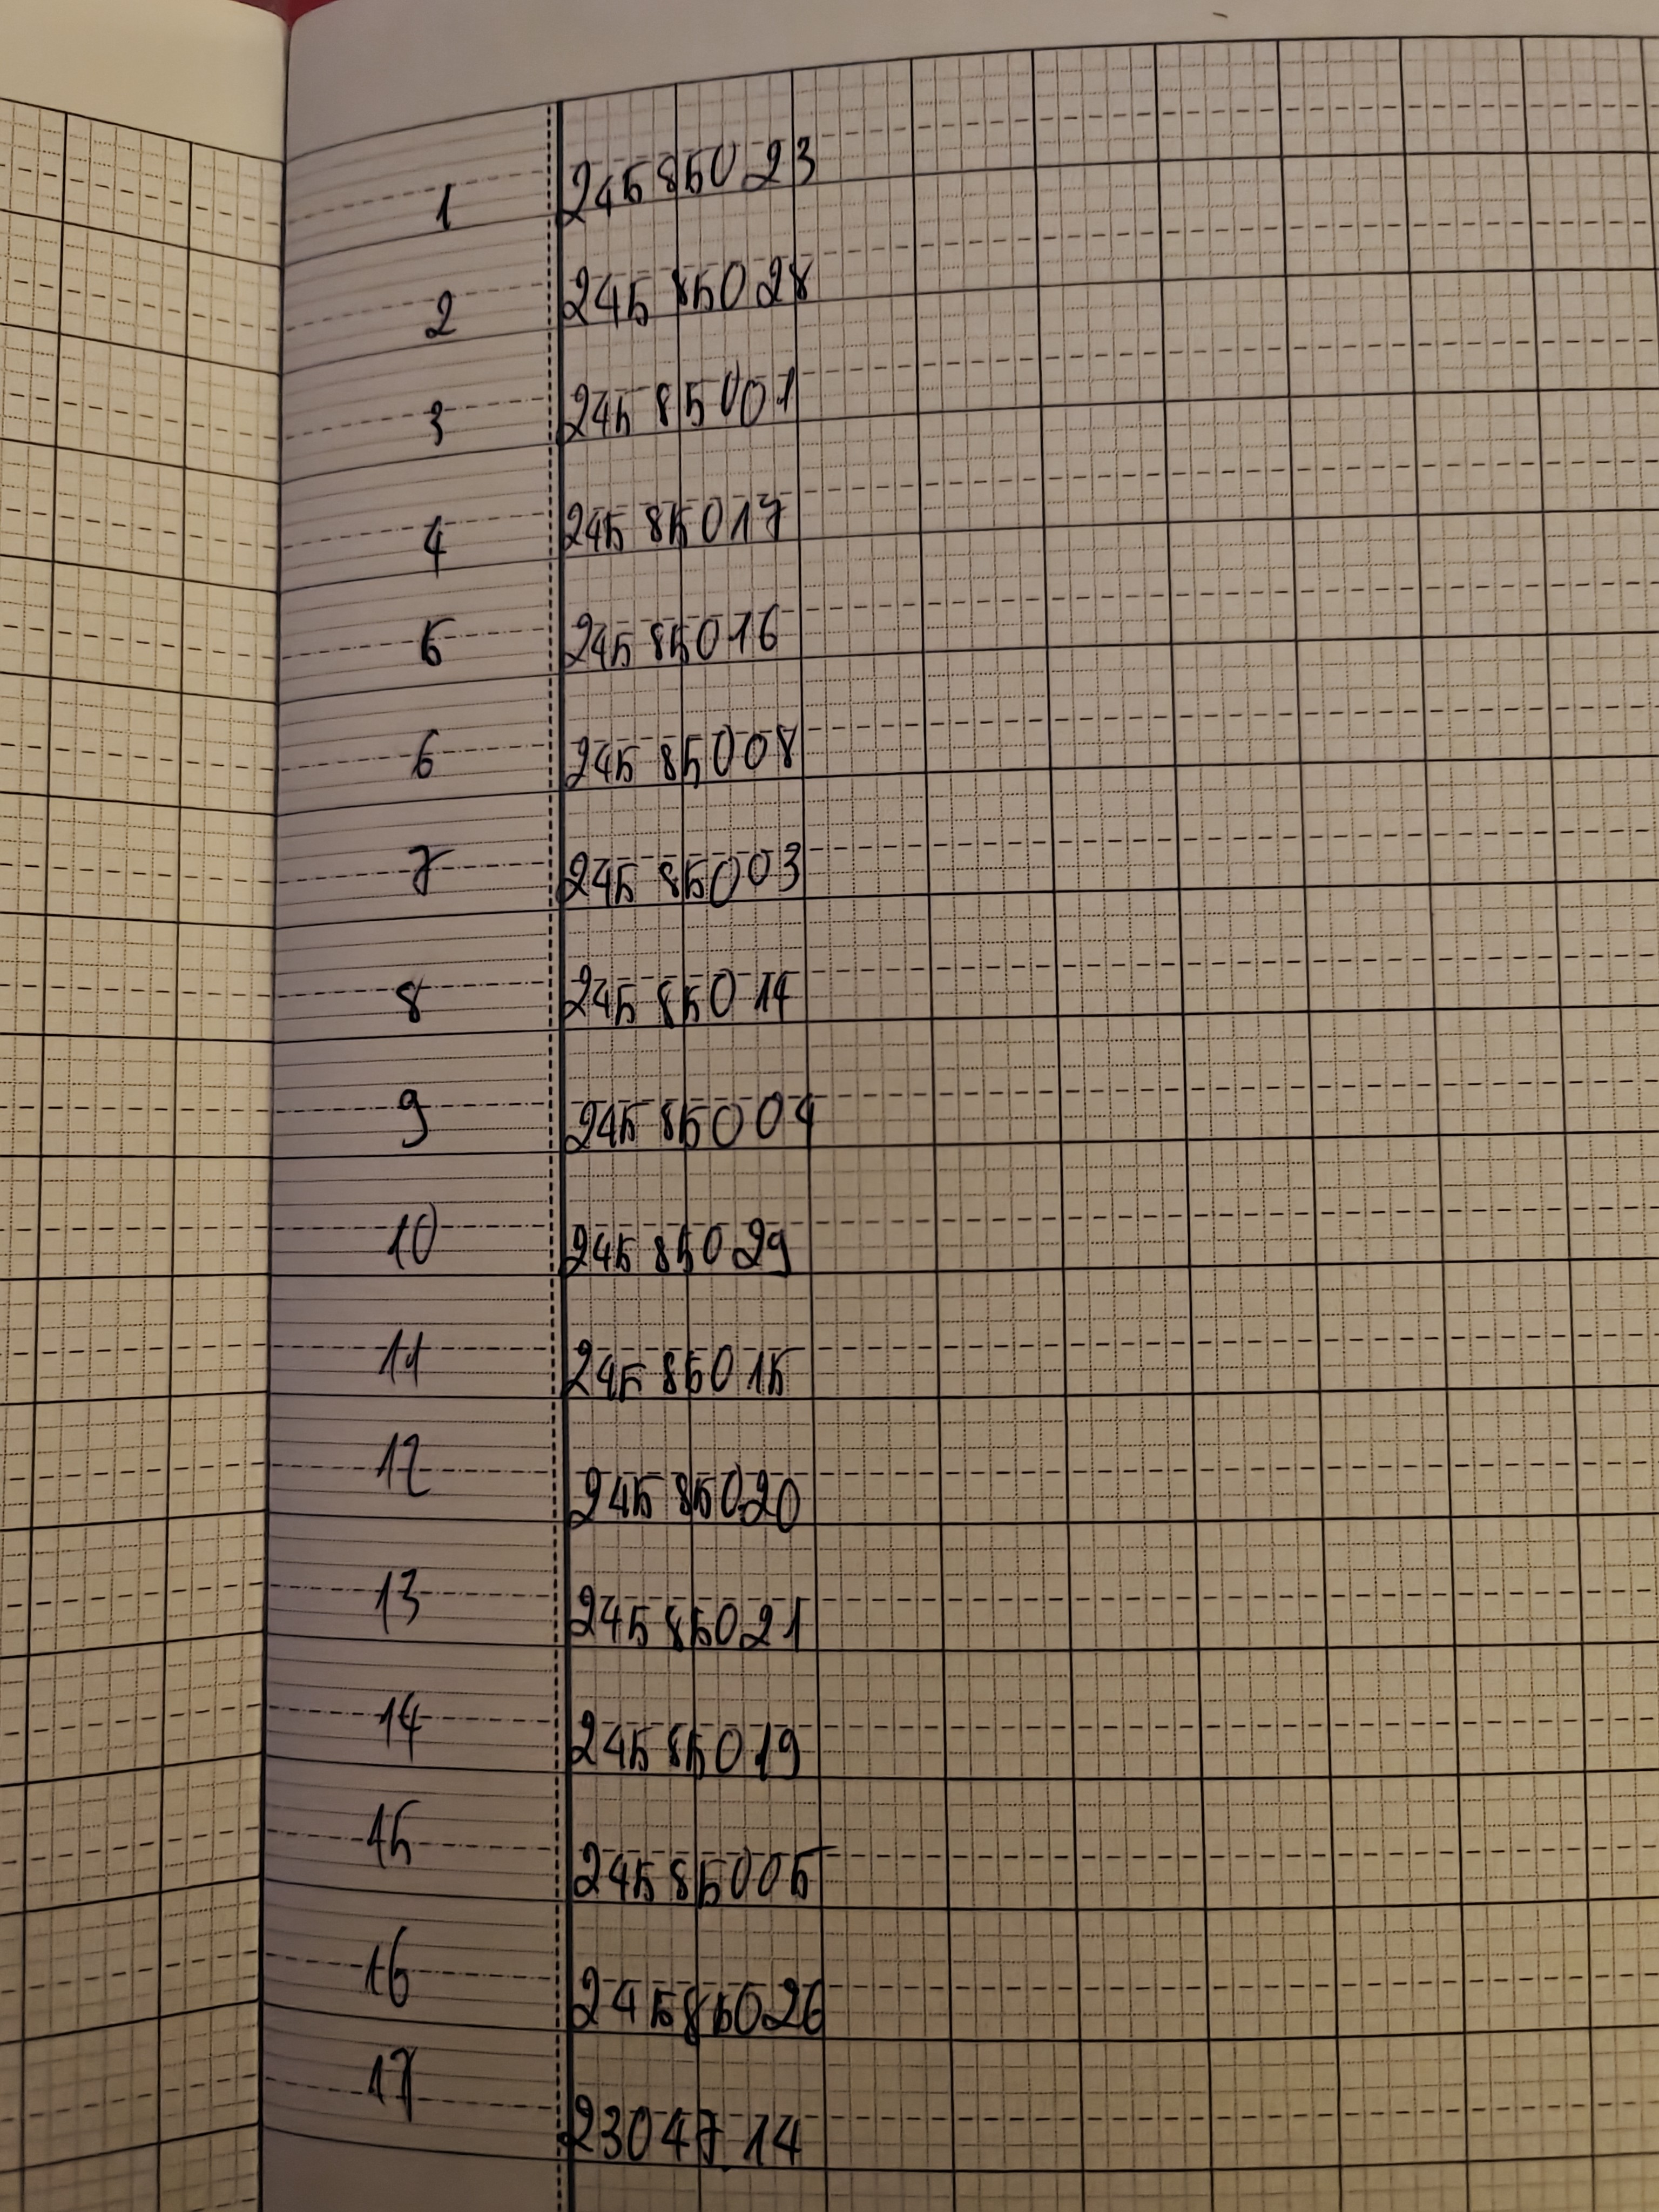 1 24585023
2 24585028
3 24585001
4 24585017
5 24585016
6 24585008
7 24585003
8 24585014
9 24585004
10 24585029
11 24585015
12 24585020
13 24585021
14 24585019
15 24585005
16 24585026
17 23047.14